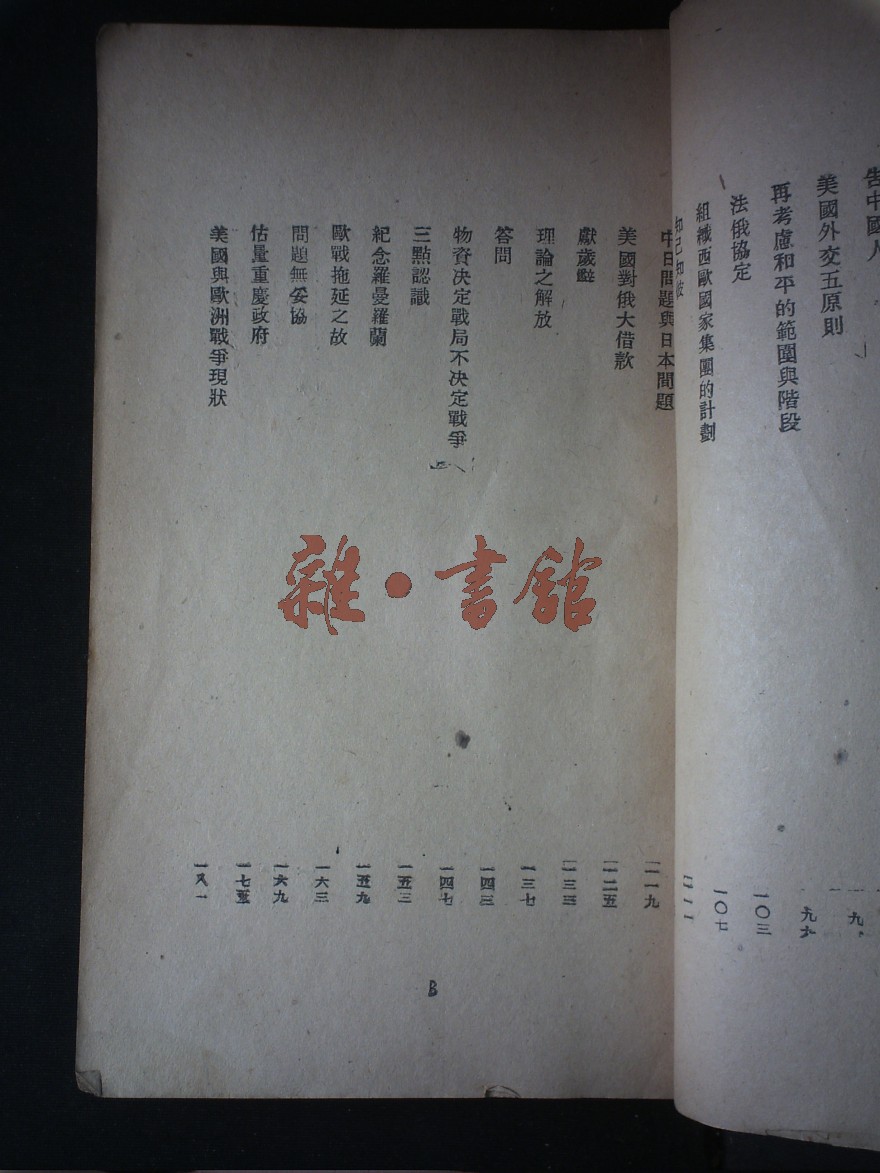 告中國人
美國外交五原則
再考慮和平的範圍與階段
法俄協定
組織西歐國家集團的計劃
知己知彼
中日問題與日本問題
美國對俄大借款
獻歲辭
理論之解放
答問
物資決定戰局不決定戰爭
三點認識
紀念羅曼羅蘭
歐戰拖延之故
問題無妥協
估量重慶政府
美國與歐洲戰爭現狀
九
一〇三
一〇七
一一一
一一九
一二五
一三三
一三七
一四三
一四七
一五三
一五九
一六三
一六九
一七五
一八一
B
雜·書館